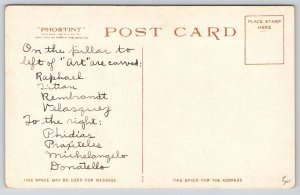 "PHOSTINT"
POST CARD
PLACE STAMP
HERE
On the pillar to
left of "Art" are carved:
Raphael
Titian
Rembrandt
Velasquez
To the right:
Phidias
Praxiteles
Michelangelo
Donatello
THIS SPACE MAY BE USED FOR MESSAGE.
THIS SPACE FOR THE ADDRESS